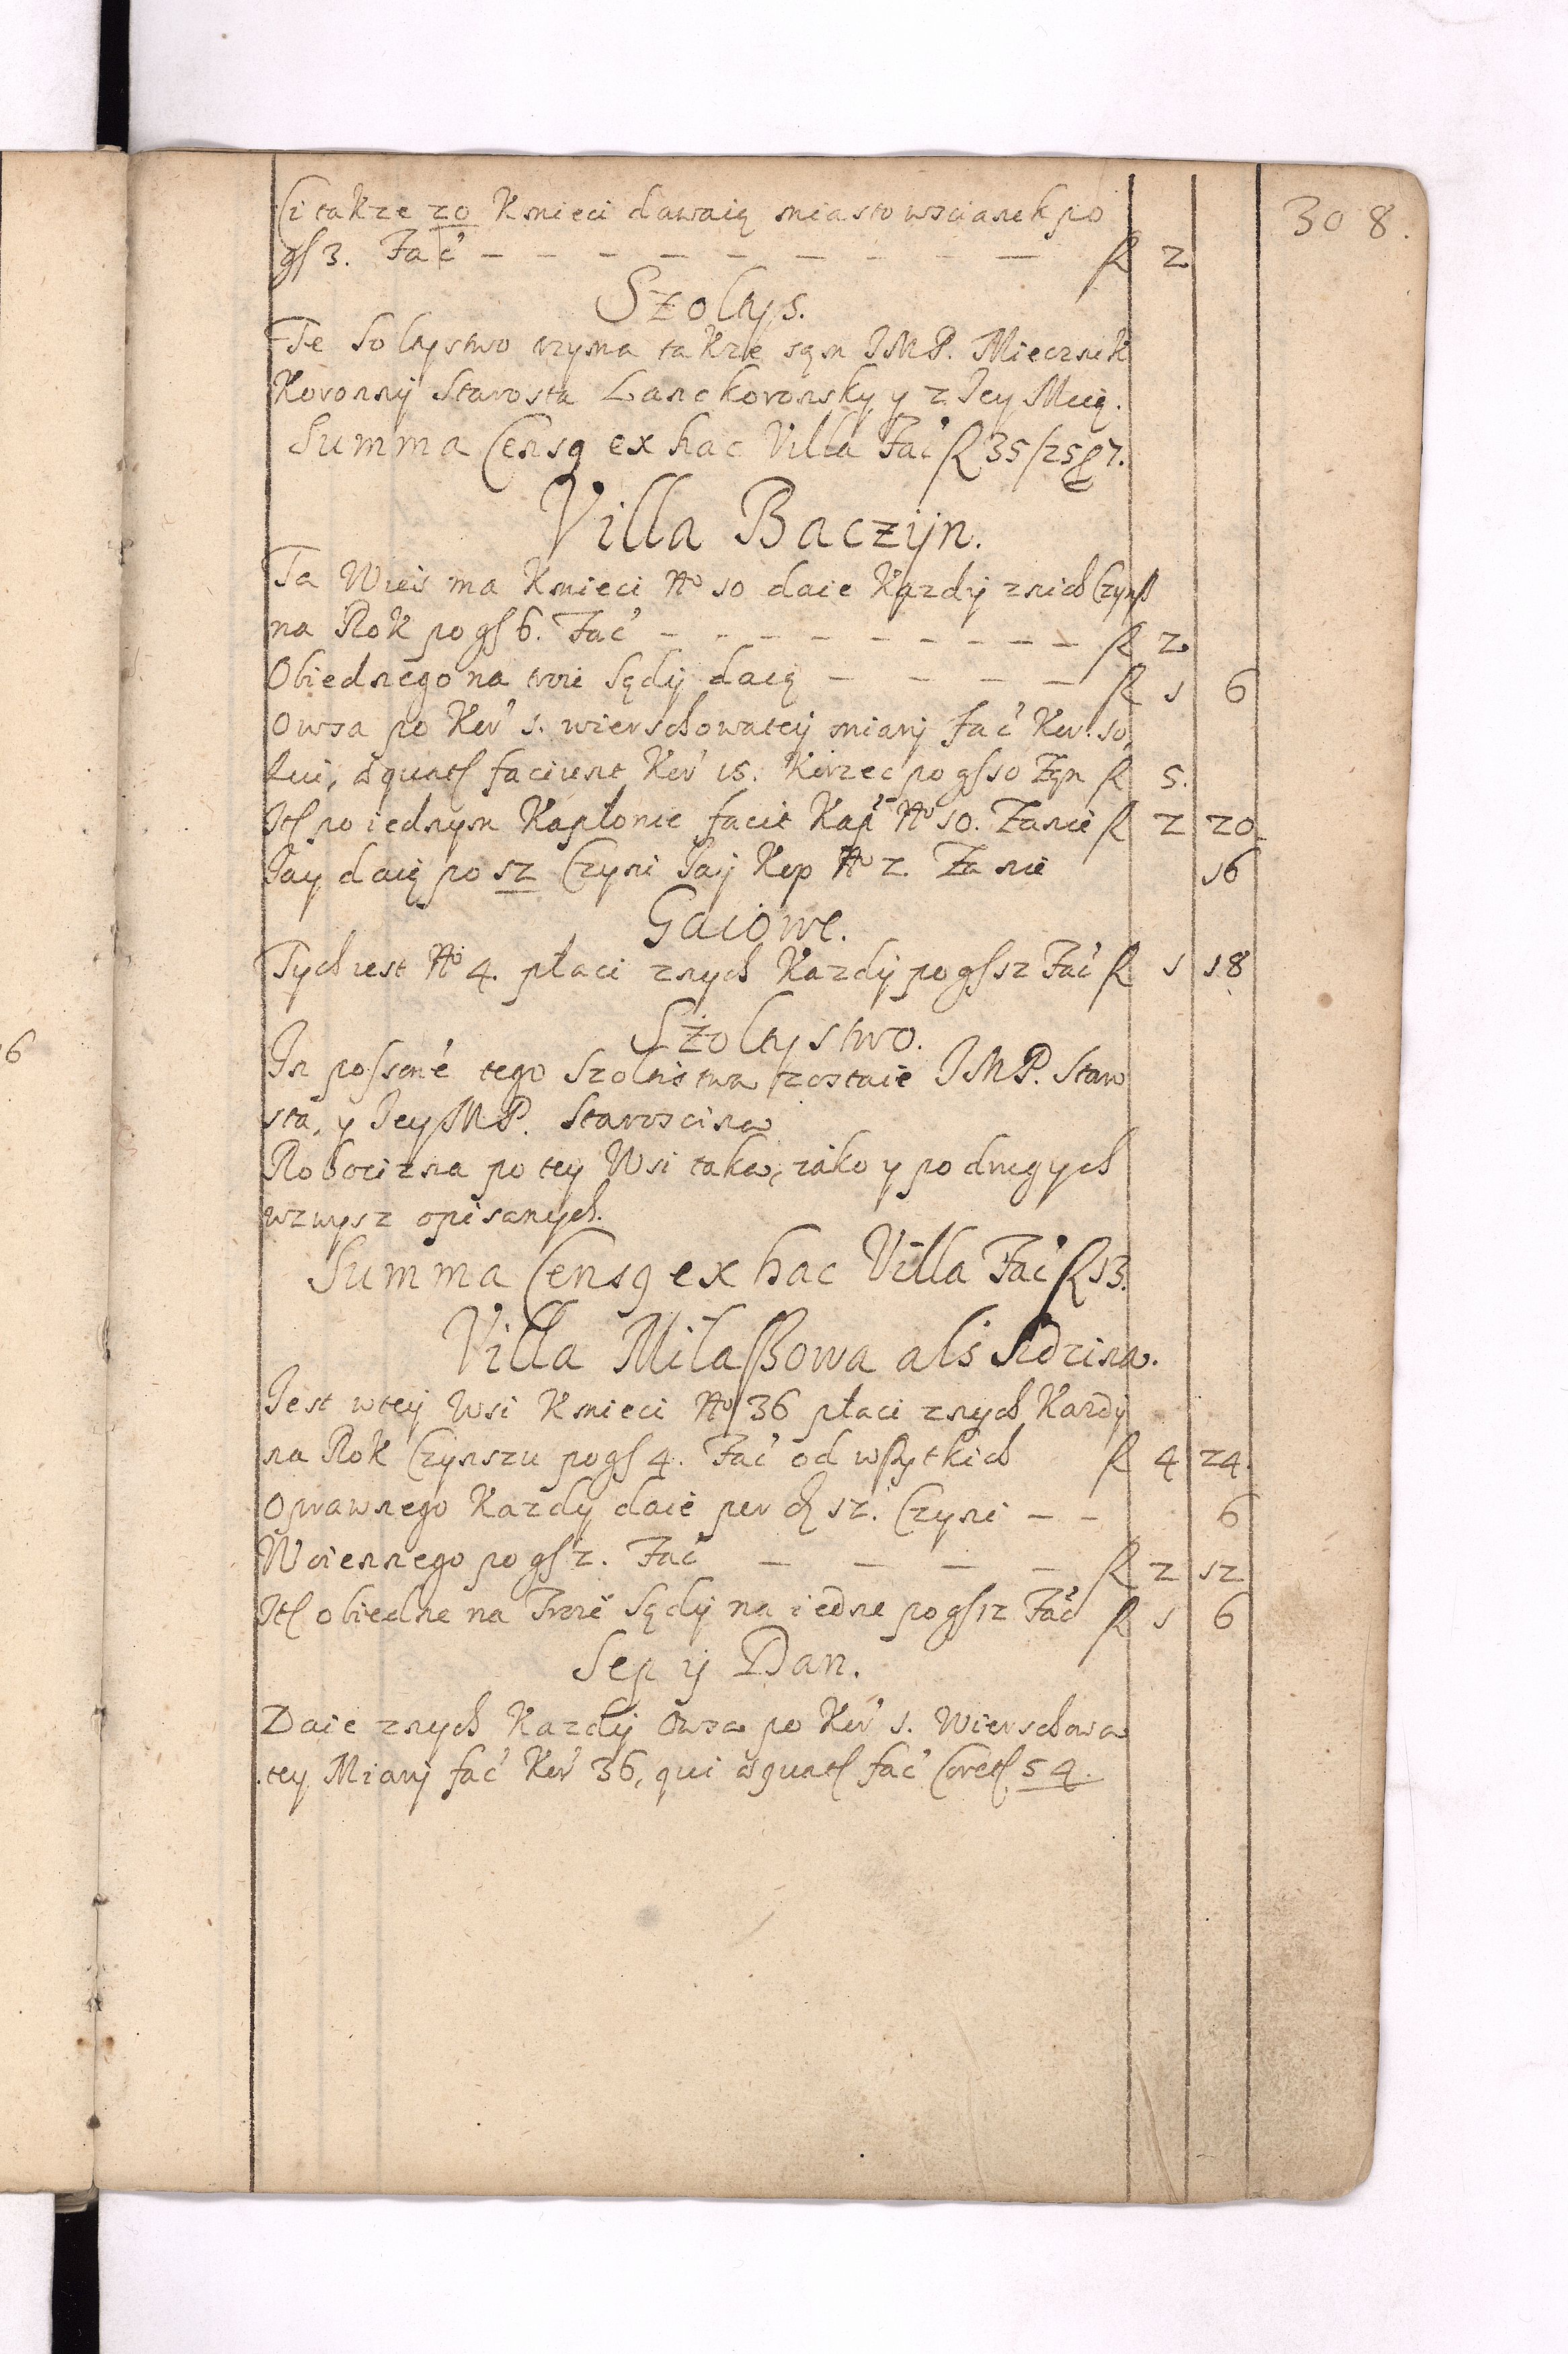 308.
Ci takze 20 Kmieci dawaią miasto wscianek po
gſ 3. Fac̃ — — — — — — — — — fl 2
Szoltys.
Te Soltystwo trzyma takze sąm JMP. Miecznik
Koronnÿ Starosta Lanckoronskÿ y z Jey Mcią.
Summa Censq ex hac Villa Fac̃ fl 35/25 7.
Villa Baczÿn.
Ta Wieś ma Kmieci No 10 daie Kazdÿ znich Czynß
na Rok po gſ 6. Fac̃ — — — — — — — — — fl 2
Obiednego na troie Sądÿ daią — — — — — fl 1 6
Owsa po Kor̃ 1. wierschowateÿ miarÿ Fac̃ Kor. 10,
Qui, æquatſ faciunt Kor̃ 15. Korzec po gſ 10 Ząn fl 5.
Itſ po iednym Kapłonie facit Kap̃ No 10. Zanie fl 2 20
Jay daią po 12 Czyni Jaÿ Kop No 2. Za nie 16
Gaiowe.
Tych iest No 4. płaci znych Kazdÿ po gſ 12 Fac̃ fl 1 18
Szoltystwo.
In possonẽ tego Szoltistwa zostaie JMP. Staro
sta, y JeyMP. Staroscina
Robocizna po tey Wsi taka, iako y po drugych
wzwysz opisanych.
Summa Censq ex hac Villa Fac̃ fl 13.
Villa Milaßowa als Sidzina.
Jest wteÿ Wsi Kmieci No 36 płaci znych Kazdÿ
na Rok Czynszu po gſ 4. Fac̃ od wßytkich fl 4 24.
Oprawnego Kazdÿ daie per 12. Czyni — — 6
Woiennego po gſ 2. Fac̃ — — — — fl 2 12
Itſ obiedne na Troie Sądÿ na iedne po gſ 12 Fac̃ fl 1 6
Sep ÿ Dan.
Daie znych Kazdÿ Owsa po Kor̃ 1. Wierschowa
tey Miarÿ fac̃ Kor̃ 36, qui æquatſ fac̃ Coretſ 54.